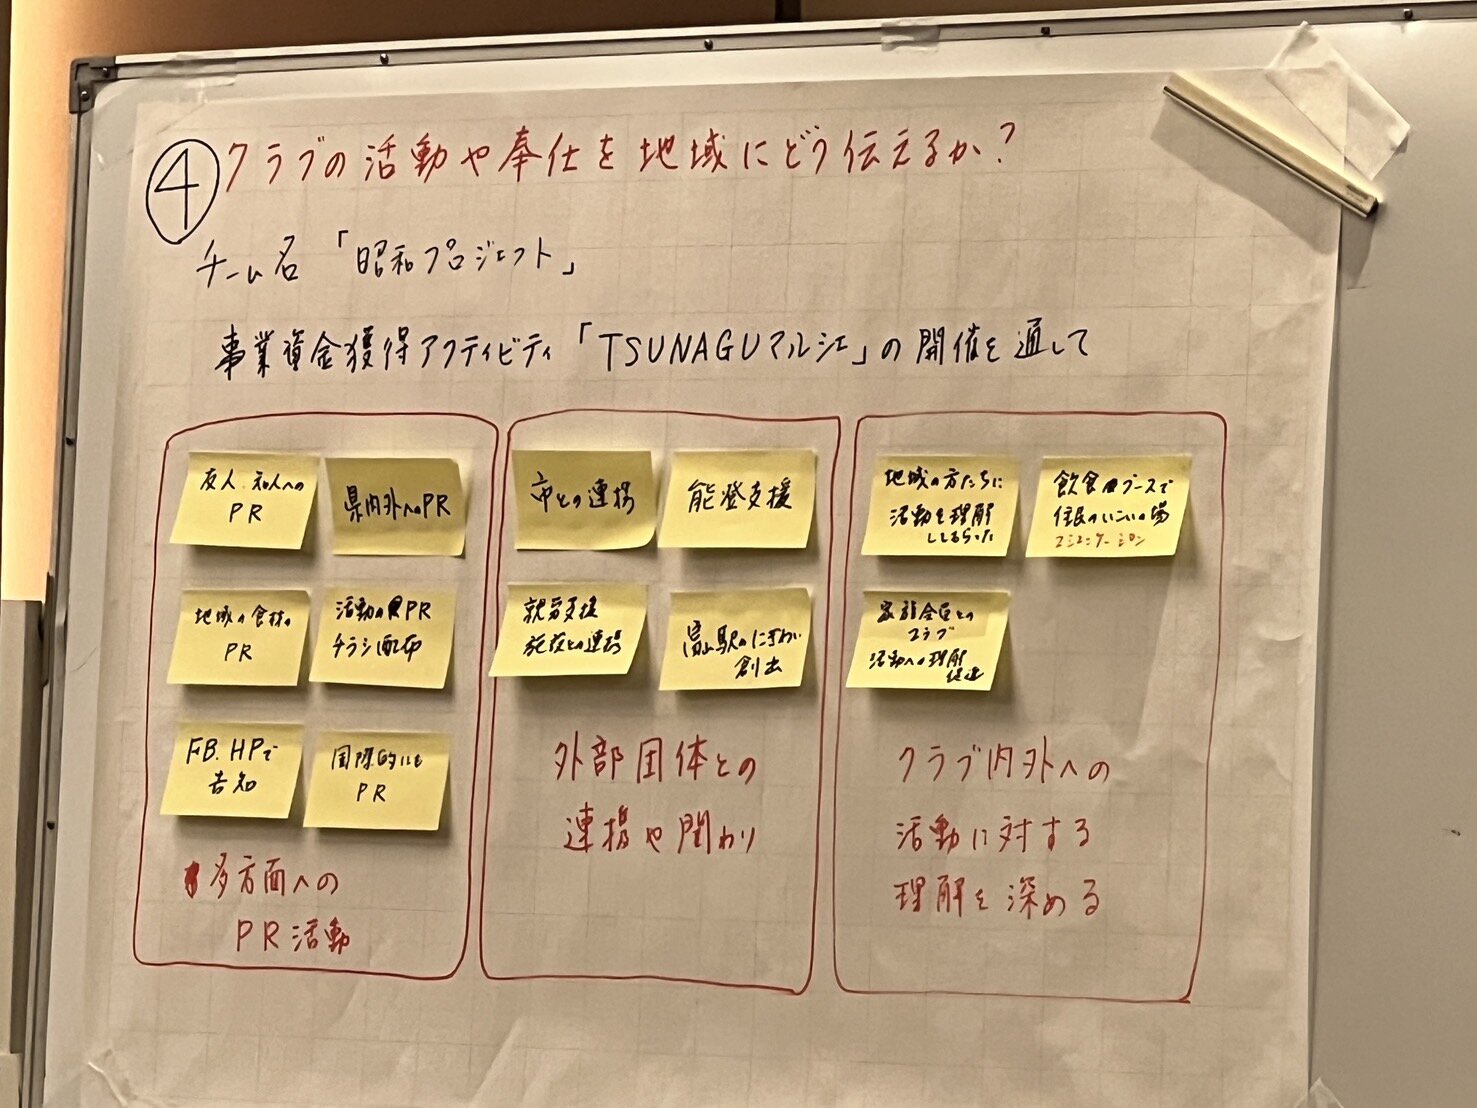 ④ クラブの活動や奉仕を地域にどう伝えるか?
チーム名「昭和プロジェクト」
事業資金獲得アクティビティ「TSUNAGUマルシェ」の開催を通して
友人、知人への
PR
県内外へのPR
地域の食材の
PR
活動のPR
チラシ配布
FB、HPで
告知
国際的にも
PR
多方面への
PR活動
市との連携
能登支援
就労支援
施設との連携
富山駅のにぎわい
創出
外部団体との
連携や関わり
地域の方たちに
活動を理解
してもらった
飲食ブースで
住民のいこいの場
コミュニケーション
家族会員との
クラブ
活動への理解
促進
クラブ内外への
活動に対する
理解を深める